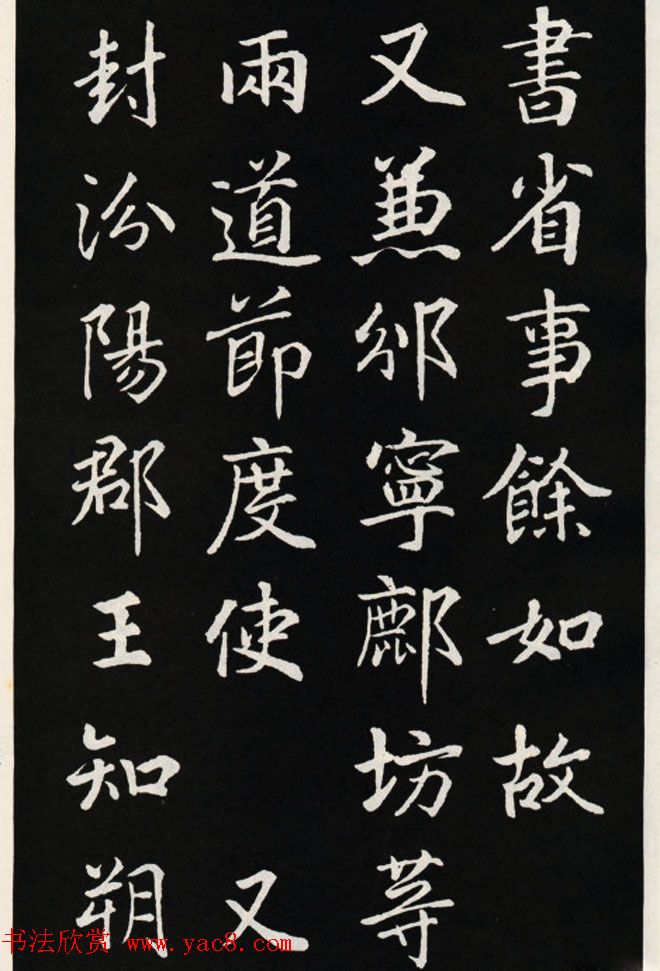 書省事餘如故
又兼邠寧鄜坊等
兩道節度使 又
封汾陽郡王知朔
书法欣赏 www.yac8.com